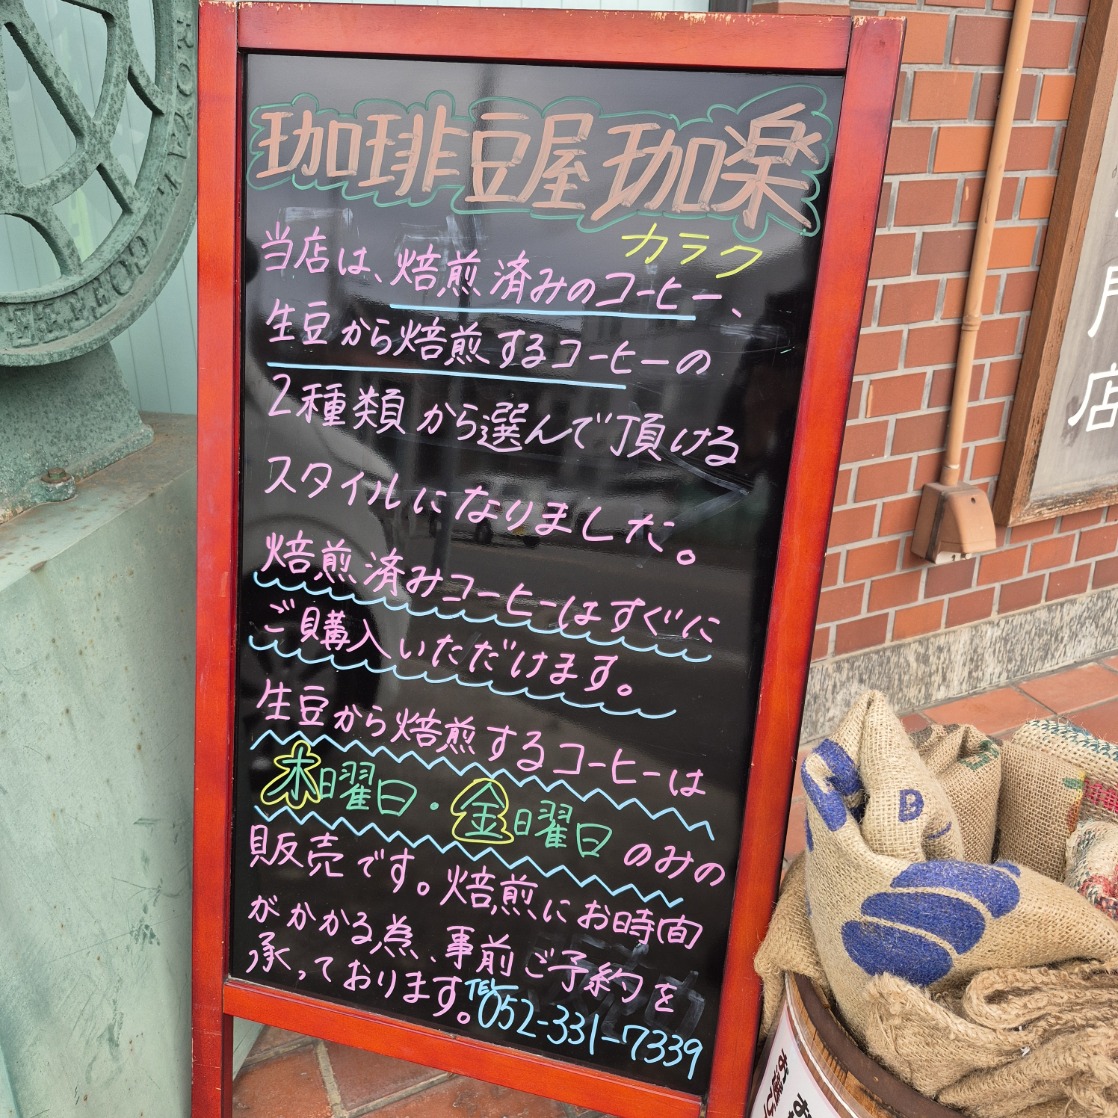 珈琲豆屋珈楽
カラク
当店は、焙煎済みのコーヒー、
生豆から焙煎するコーヒーの
2種類から選んで頂ける
スタイルになりました。
焙煎済みコーヒーはすぐに
ご購入いただけます。
生豆から焙煎するコーヒーは
木曜日・金曜日のみの
販売です。焙煎にお時間
がかかる為、事前ご予約を
承っております。
TEL 052-331-7339
店